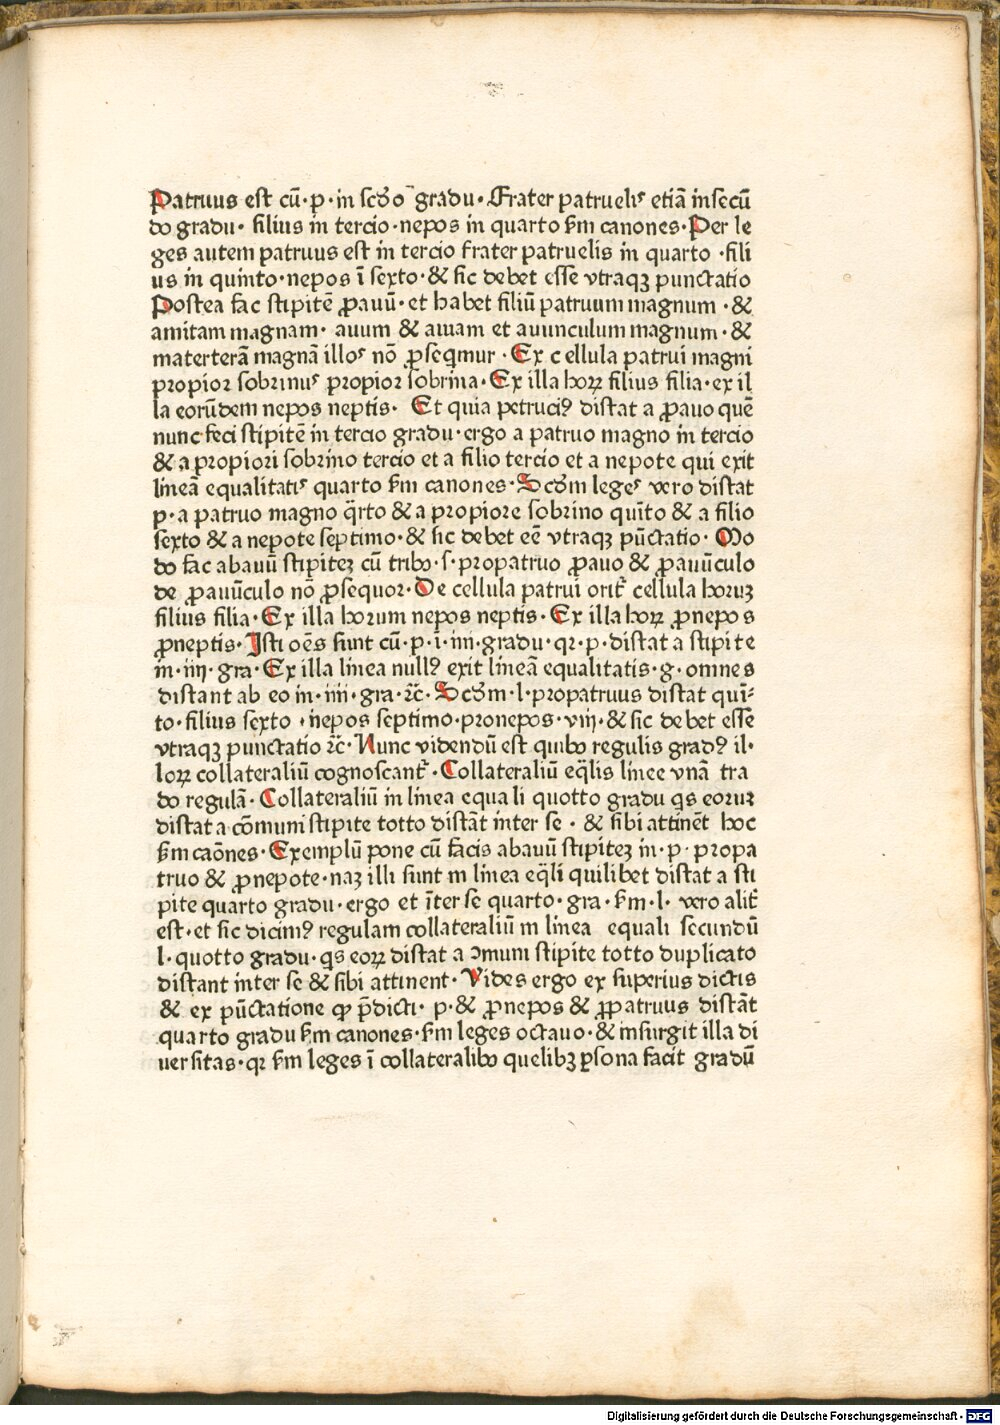 Patruus est cū·p·in scďo gradu·Frater patruelꝭ etiā insecū
do gradu· filius in tercio·nepos in quarto ẜm canones·Per le
ges autem patruus est in tercio frater patruelis in quarto ·fili
us in quinto·nepos ī sexto·& sic debet esse vtraqꝫ punctatio
Postea fac stipitē ꝓauū·et habet filiū patruum magnum ·&
amitam magnam· auum & auiam et auunculum magnum·&
materterā magnā illoꝭ nō ꝓseqmur ·Ex cellula patrui magni
propior sobrinuꝭ propior sobrina·Ex illa hoꝝ filius filia·ex il
la eorūdem nepos neptis· Et quia petruciꝰ distat a ꝓauo quē
nunc feci stipitē in tercio gradu·ergo a patruo magno in tercio
& a propiori sobrino tercio et a filio tercio et a nepote qui exit
lineā equalitatiꝭ quarto ẜm canones·Scďm legeꝭ vero distat
p·a patruo magno q̈rto & a propiore sobrino quīto & a filio
sexto & a nepote septimo·& sic debet eē vtraqꝫ pūctatio· Mo
do fac abauū stipiteꝫ cū tribꝰ·s·propatruo ꝓauo & ꝓauūculo
de ꝓauūculo nō ꝓsequor·De cellula patrui orit᷑ cellula horuꝫ
filius filia·Ex illa horum nepos neptis·Ex illa hoꝝ ꝓnepos
ꝓneptis·Isti oēs sunt cū·p·ī·iiii·gradu·qꝛ·p·distat a stipite
in·iiij·gra·Ex illa linea nullꝰ exit lineā equalitatis·g·omnes
distant ab eo in·iiii·gra·ꝛc̄·Scďm·l·propatruus distat quī-
to·filius sexto ·nepos septimo·pronepos·viij·& sic debet esse
vtraqꝫ punctatio ꝛc̄·Nunc videndū est quibꝰ regulis gradꝰ il·
loꝝ collateraliū cognoscant᷑·Collateraliū eq̈lis linee vnā tra
do regulā·Collateraliū in linea equali quotto gradu qs eoruꝫ
distat a cōmuni stipite totto distāt inter se · & sibi attinēt hoc
ẜm caōnes·Exemplū pone cū facis abauū stipiteꝫ in·p·propa
truo & ꝓnepote·naꝫ illi sunt in linea eq̈li quilibet distat a sti
pite quarto gradu·ergo et īter se quarto·gra·ẜm·l· vero alit᷑
est·et sic dicimꝰ regulam collateraliū in linea equali secundū
l·quotto gradu·qs eoꝝ distat a ꝯmuni stipite totto duplicato
distant inter se & sibi attinent·Vides ergo ex superius dictis
& ex pūctatione ꝙ p̄dicti·p·& ꝓnepos & ꝓpatruus distāt
quarto gradu ẜm canones·ẜm leges octauo·& insurgit illa di
uersitas·qꝛ ẜm leges ī collateralibꝰ quelibꝫ ꝑsona facit gradū
Digitalisierung gefördert durch die Deutsche Forschungsgemeinschaft - DFG